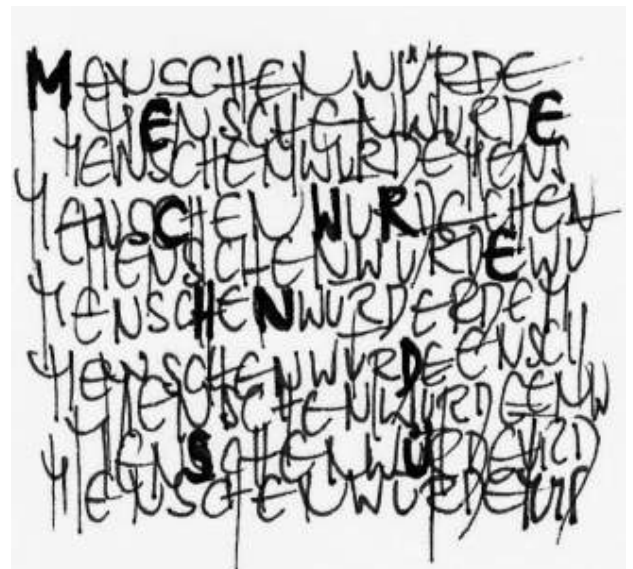 MENSCHENWÜRDE
MENSCHENWURDE
MENSCHENWURDEMENS
MENSCHENWURDECHEN
MENSCHENWURDEWU
MENSCHENWURDERDEM
MENSCHENWURDEENSCH
MENSCHENWURDEENW
MENSCHENWURDEURD
MENSCHENWURDE